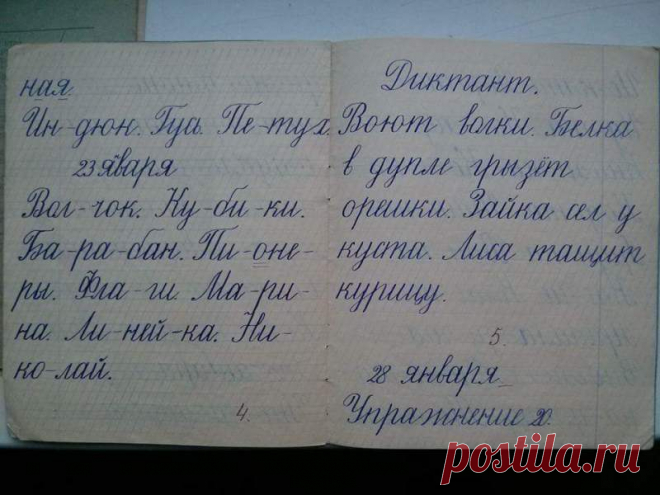 ная
Ин-дюк. Гусь. Пе-тух.
23 января
Вол-чок. Ку-би-ки.
Ба-ра-бан. Пи-оне-
ры. Фла-ги. Ма-ри-
на. Ли-ней-ка. Ни-
ко-лай.
4.
Диктант.
Воют волки. Белка
в дупле грызёт
орешки. Зайка сел у
куста. Лиса тащит
курицу.
5.
28 января
Упражнение 20.
postila.ru